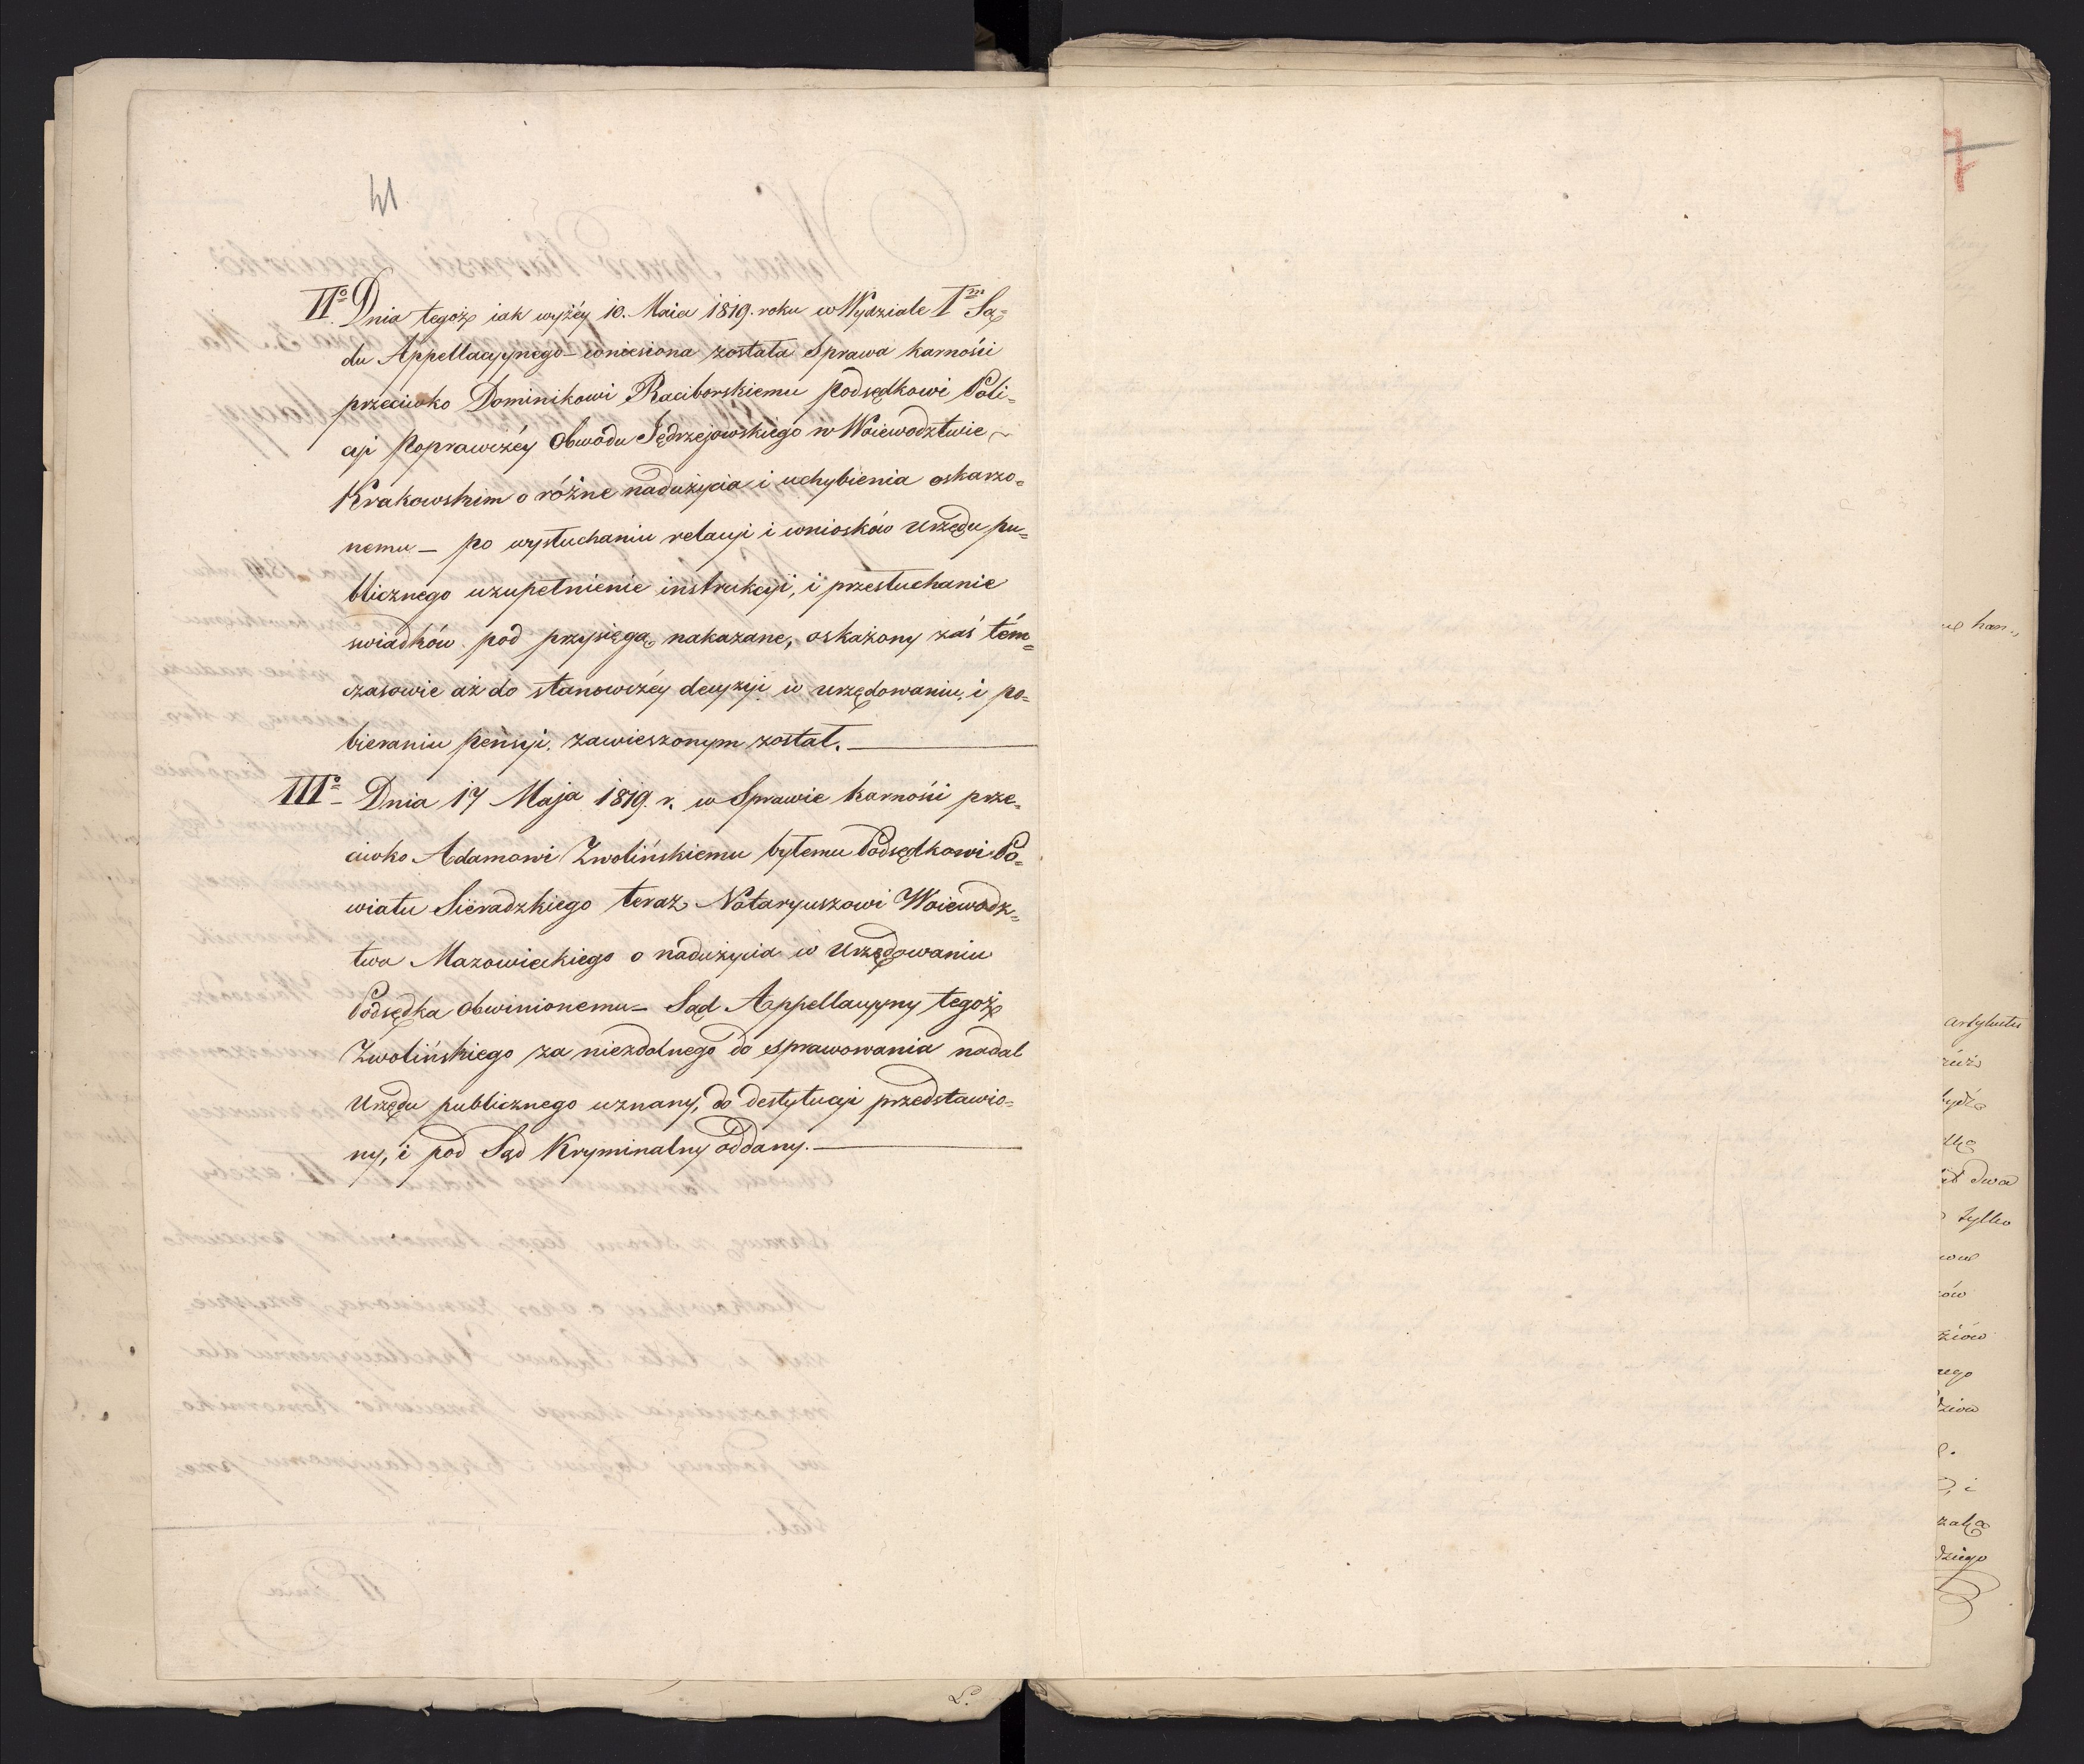 41
II° Dnia tegoż iak wyżéy 10. Maia 1819. roku w Wydziale I<sup>m</sup> Są=
du Appellacyynego – wniesiona została Sprawa karności
przeciwko Dominikowi Raciborskiemu Podsędkowi Poli=
cyi Poprawczéy Obwodu Jędrzejowskiego w Woiewodztwie
Krakowskim o różne nadużycia i uchybienia oskarzo=
nemu – po wysłuchaniu relacyi i wniosków Urzędu pu=
blicznego uzupełnienie instrukcyi, i przesłuchanie
swiadków pod przysięgą nakazane, oskażony zaś tém=
czasowie aż do stanowczéy decyzyi w urzędowaniu, i po=
bieraniu pensyi, zawieszonym został.
III° – Dnia 17 Maja 1819. r. w Sprawie karności prze=
ciwko Adamowi Zwolińskiemu byłemu Podsędkowi Po=
wiatu Sieradzkiego teraz Notaryuszowi Woiewodz=
twa Mazowieckiego o nadużycia w Urzędowaniu
Podsędka obwinionemu – Sąd Appellacyyny tegoż
Zwolińskiego za niezdolnego do sprawowania nadal
Urzędu publicznego uznany, do destytucyi przedstawio=
ny, i pod Sąd Kryminalny oddany.